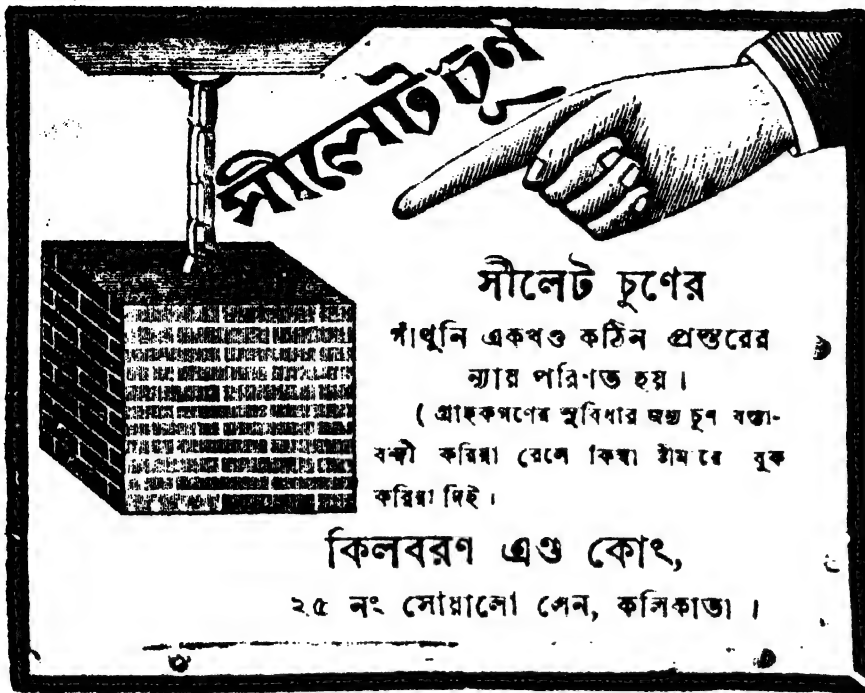 সীলেট চূণ
সীলেট চূণের
গাঁথুনি একখণ্ড কঠিন প্রস্তরের
ন্যায় পরিণত হয় ।
( গ্রাহকগণের সুবিধার জন্য চূণ বস্তা-
বন্দী করিয়া রেলে কিম্বা ষ্টীমারে বুক
করিয়া দিই ।
কিলবরণ এণ্ড কোং,
২৫ নং সোয়ালো লেন, কলিকাতা ।